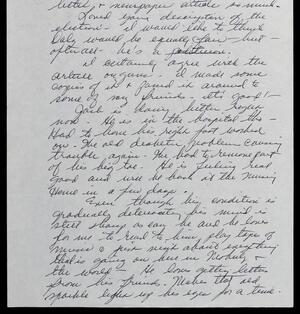 letter, & newspaper article so much.
Loved your description of the
election - I would like to think
Bob would be equally fair - but -
after all - he's a politician.
I certainly agree with the
article on guns. I made some
copies of it & passed it around to
some of my friends - it's good!
Jack is doing better right
now - He is in the hospital tho -
Had to have his right foot worked
on - The old diabetic problem causing
trouble again - They had to remove part
of his big toe. He is feeling real
good and will be back at the Nursing
Home in a few days.
Even though his condition is
gradually deteriorating his mind is
still sharp as can be and he loves
for me to read to him, play tapes of
music & just visit about everything
that's going on here in &
the world - He loves getting letters
from his friends. Makes that old
sparkle light up his eyes for a time.